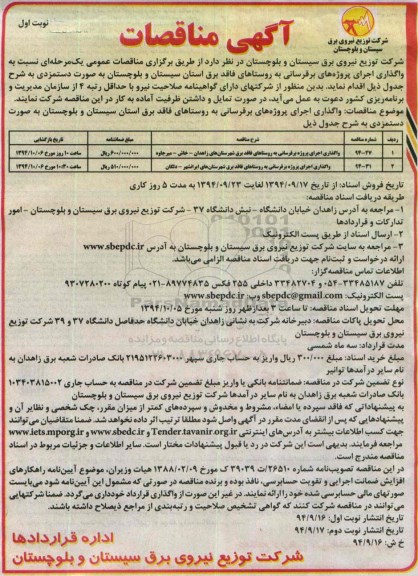 نوبت اول
آگهی مناقصات
شرکت توزیع نیروی برق
سیستان و بلوچستان
شرکت توزیع نیروی برق سیستان و بلوچستان در نظر دارد از طریق برگزاری مناقصات عمومی یک‌مرحله‌ای نسبت به
واگذاری اجرای پروژه‌های برقرسانی به روستاهای فاقد برق استان سیستان و بلوچستان به صورت دستمزدی به شرح
جدول ذیل اقدام نماید. بدین منظور از شرکتهای دارای گواهینامه صلاحیت نیرو با حداقل رتبه ۴ از سازمان مدیریت و
برنامه‌ریزی کشور دعوت به عمل می‌آید، در صورت تمایل و داشتن ظرفیت آماده به کار در این مناقصه شرکت نمایند.
موضوع مناقصات: واگذاری اجرای پروژه‌های برقرسانی به روستاهای فاقد برق استان سیستان و بلوچستان به صورت
دستمزدی به شرح جدول ذیل
ردیف شماره مناقصه شرح مناقصه مبلغ ضمانتنامه تاریخ بازگشایی
۱ واگذاری اجرای پروژه برقرسانی به روستاهای فاقد برق شهرستان‌های زاهدان - خاش - میرجاوه ساعت ۱۰ روز مورخ ۱۳۹۴/۱۰/۰۶
۲ ۹۴-۳۱ واگذاری اجرای پروژه برقرسانی به روستاهای فاقد برق شهرستان‌های ایرانشهر - دلگان ساعت ۱۰:۳۰ مورخ ۱۳۹۴/۱۰/۰۶
تاریخ فروش اسناد: از تاریخ ۱۳۹۴/۰۹/۱۷ لغایت ۱۳۹۴/۰۹/۲۳ به مدت ۵ روز کاری
طریقه دریافت اسناد مناقصه:
۱- مراجعه به آدرس زاهدان خیابان دانشگاه - نبش دانشگاه ۳۷ - شرکت توزیع نیروی برق سیستان و بلوچستان - امور
تدارکات و قراردادها
۲- ارسال اسناد از طریق پست الکترونیک
۳- مراجعه به سایت شرکت توزیع نیروی برق سیستان و بلوچستان به آدرس www.sbepdc.ir
ارائه درخواست و ثبت‌نام جهت دریافت اسناد مناقصه الزامی می‌باشد.
اطلاعات تماس مناقصه‌گزار:
تلفن ۳۳۴۸۵۱۸۷-۰۵۴ و ۳۳۴۸۲۷۰۴ داخلی ۲۵۵ فکس ۸۹۷۷۴۸۳۵-۰۲۱ پیام کوتاه ۹۳۰۷۲۸۰۲۰۰
پست الکترونیک: sbepdc@gmail.com وب: www.sbepdc.ir
مهلت تحویل اسناد مناقصه: تا ساعت ۳ بعدازظهر روز شنبه مورخ ۱۳۹۴/۱۰/۰۵
محل تحویل پاکات مناقصه: دبیرخانه شرکت به نشانی زاهدان خیابان دانشگاه حدفاصل دانشگاه ۳۷ و ۳۹ شرکت توزیع
نیروی برق سیستان و بلوچستان
مدت قرارداد: سه ماه شمسی
مبلغ خرید اسناد: مبلغ ۳۰۰/۰۰۰ ریال واریز به حساب جاری سپهر بانک صادرات شعبه برق زاهدان به
نام سایر درآمدها توانیر
نوع تضمین شرکت در مناقصه: ضمانتنامه بانکی یا واریز مبلغ تضمین شرکت در مناقصه به حساب جاری
بانک صادرات شعبه برق زاهدان به نام سایر درآمدها شرکت توزیع نیروی برق سیستان و بلوچستان
به پیشنهاداتی که فاقد سپرده یا امضاء، مشروط و مخدوش و سپرده‌های کمتر از میزان مقرر، چک شخصی و نظایر آن و
پیشنهادهایی که پس از انقضای مدت مقرر در آگهی واصل شود مطلقا ترتیب اثر داده نخواهد شد. ضمنا متقاضیان می‌توانند
جهت کسب اطلاعات بیشتر به آدرس‌های اینترنتی Tender.tavanir.org.ir و www.sbedc.ir و www.iets.mporg.ir
مراجعه فرمایند. بدیهی است این شرکت در رد یا قبول پیشنهادات مختار است. سایر اطلاعات و جزئیات مربوط در اسناد
مناقصه مندرج است.
در این مناقصه تصویب‌نامه شماره ۲۶۵۱۰/ت ۳۹۰۳۹ ک مورخ ۱۳۸۸/۰۲/۰۹ هیات وزیران، موضوع آیین‌نامه راهکارهای
افزایش ضمانت اجرایی و تقویت حسابرسی، نافذ بوده و برنده مناقصه در صورتی که مشمول این آیین‌نامه شود می‌بایست
صورتهای مالی حسابرسی شده خود را ارائه نمایند. در غیر این صورت از واگذاری قرارداد خودداری می‌گردد. ضمنا شرکتهایی
می‌توانند در مناقصه شرکت کنند که گواهی تشخیص صلاحیت و رتبه‌بندی از مراجع ذیصلاح داشته باشند.
تاریخ انتشار نوبت اول: ۹۴/۹/۱۶
تاریخ انتشار نوبت دوم: ۹۴/۹/۱۷
ش خ: ۹۴/۹/۱۶
اداره قراردادها
شرکت توزیع نیروی برق سیستان و بلوچستان